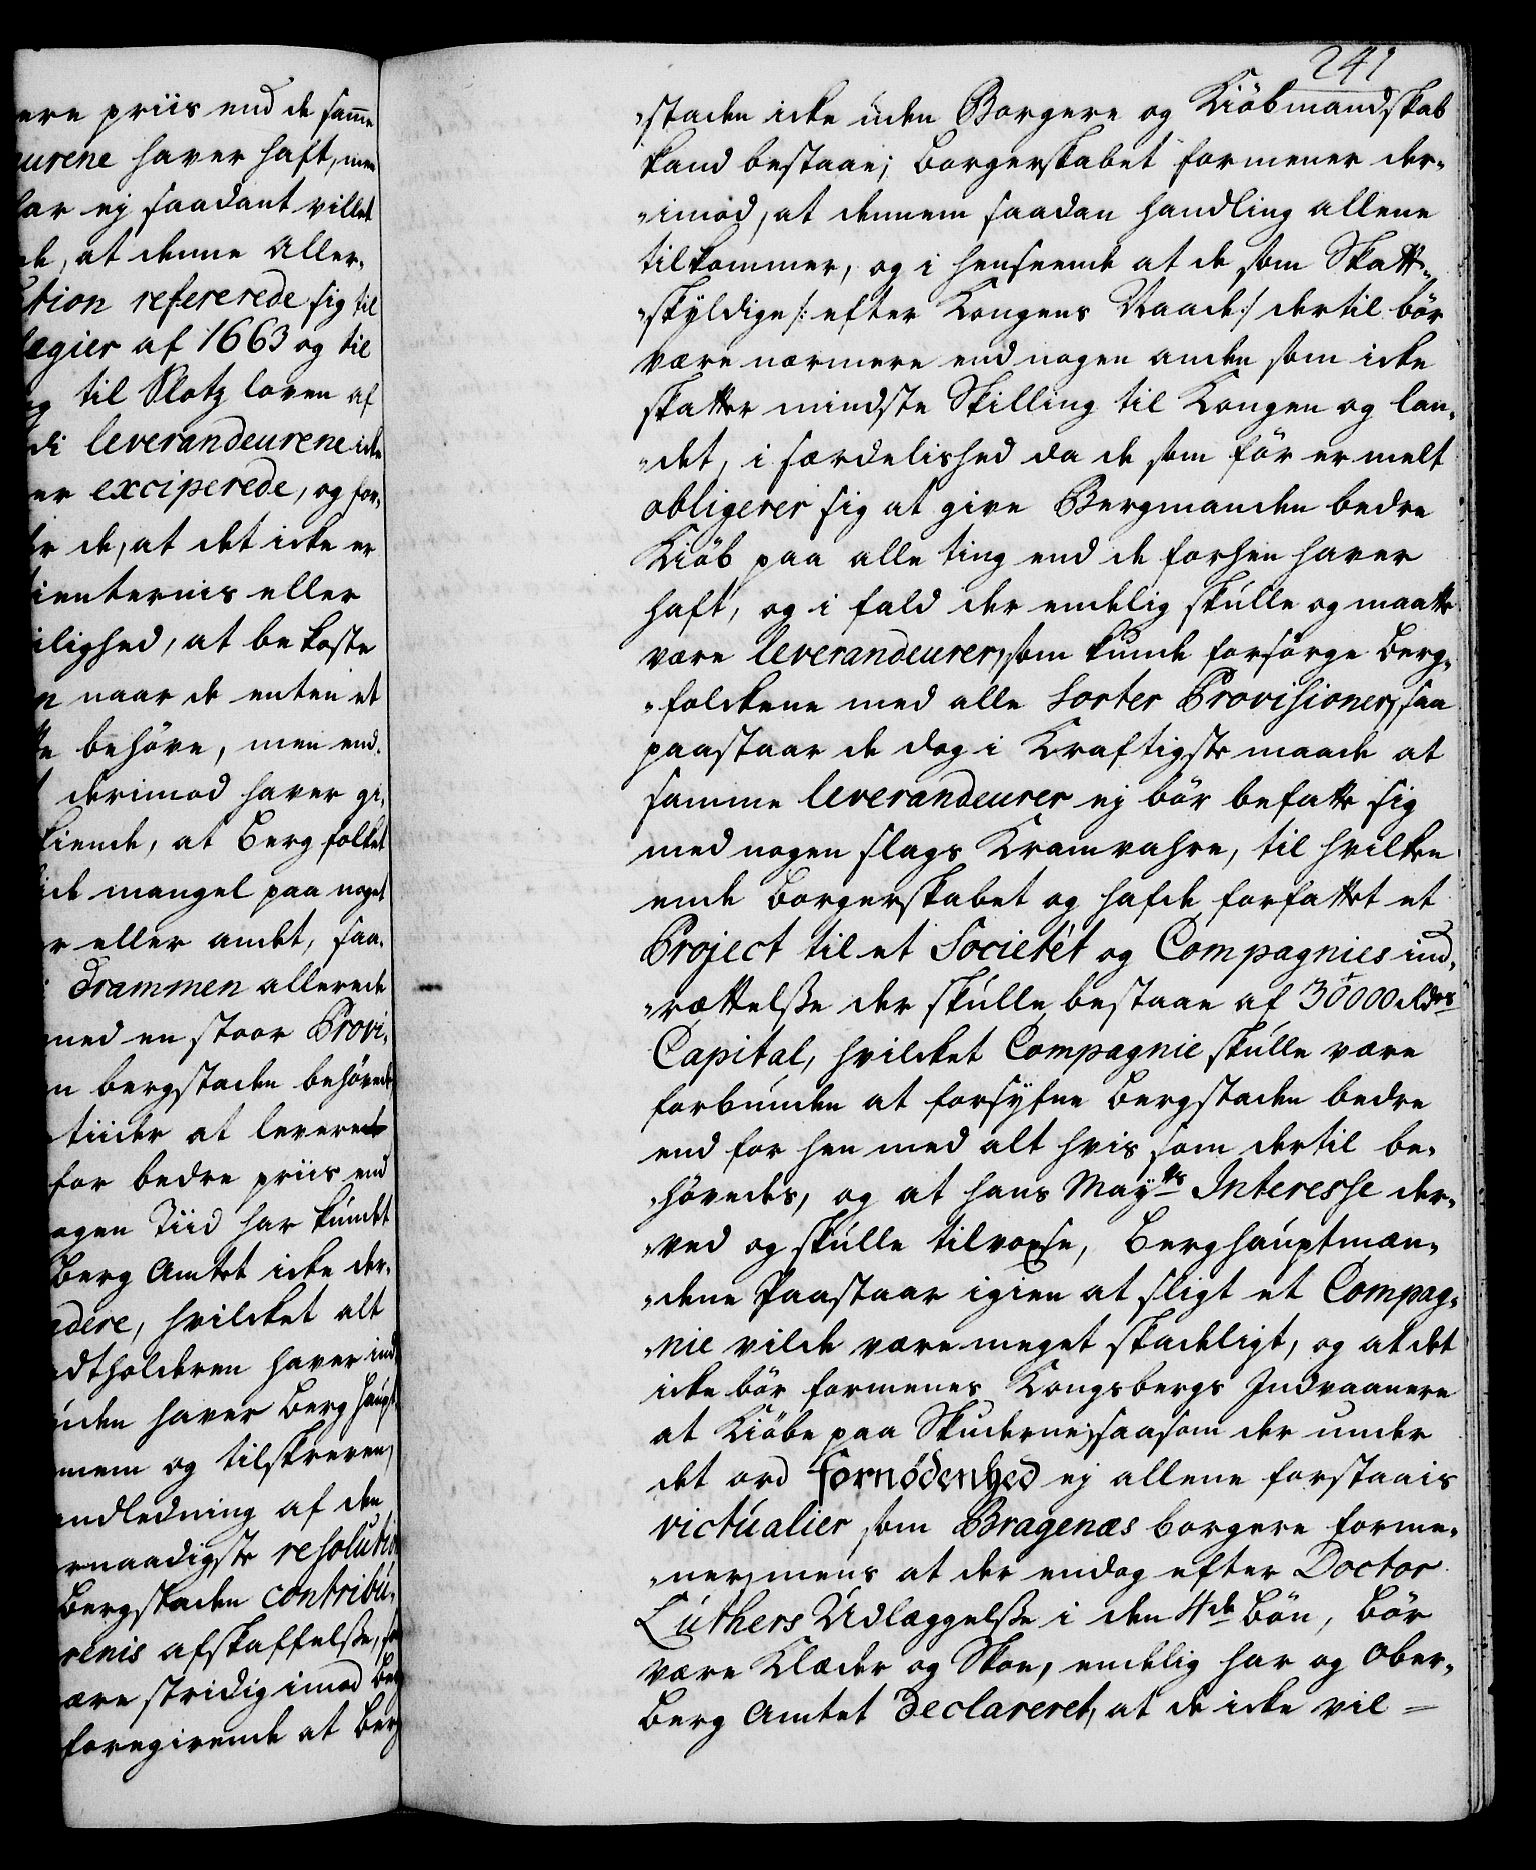 ere priis end de samme
eurene haver haft, men
har ej saadant villet
de, at denne Aller-
ution refererede sig til
legier af 1663 og til
og til Slotz loven af
di leverandeurene icke
er exciperede, og for-
er de, at det icke er
ienternis eller
ilighed, at bekoste
n naar de enten et
te behöve, men end-
derimod haver gi-
kiende, at Berg folket
ide mangel paa noget
r eller andet, saa-
Drammen allerede
med en stoor Provi-
n bergstaden behövede
tiider at levere
for bedre priis end
ogen Tiid har kundet
Berg Amtet icke der-
dere, hvilcket alt
dtholderen haver ind
inden haver Berg haupt
mem og tilskreven,
andledning af den
rnaadigste resolution
Bergstaden contribu-
renis afskaffelsse, so
ære stridig imod Ber
foregivende at Berg
241
"staden icke uden Borgere og Kiöbmandskab
kand bestaae; Borgerskabet formener der-
"imod, at dennem saadan handling allene
tilkommer, og i henseende at de som Skatt-
"skyldige /: efter Kongens Naade :/ dertil bör
være nærmere end nogen anden som icke
skatter mindste Skilling til Kongen og lan-
"det, i særdelished da de som för er melt
obligerer sig at give Bergmanden bedre
Kiöb paa alle ting end de forhen haver
haft, og i fald der endelig skulle og maatte
være leverandeurer, som kunde forsörge Berg-
"folckene med alle Sorter Provisioner, saa
paastaar de dog i Kraftigste maade at
samme leverandeurer ej bör befatte sig
med nogen slags Kramvahre, til hvilken
ende Borgerskabet og hafde forfattet et
Project til et Societét og Compagnies ind-
"rættelsse der skulle bestaae af 30000 Rdrs
Capital, hvilcket Compagnie skulle være
forbunden at forsyfne Bergstaden bedre
end for hen med alt hvis som dertil be-
"hövedes, og at hans Mayts Interesse der-
"ved og skulle tilvoxse, Berghauptmæn-
"dene Paastaar igien at sligt et Compag-
"nie vilde være meget skadeligt, og at det
icke bör formenes Kongsbergs Indvaanere
at Kiöbe paa Skuderne, saasom der under
det ord fornödenhed ej allene forstaais
victualier som Bragenæs Borgere forme-
"ner, mens at der endog efter Doctor
Luthers Udlæggelsse i den 4de Bön, bör
være Klæder og Skoe, endelig har og Ober-
Berg Amtet Declareret, at de icke vil =